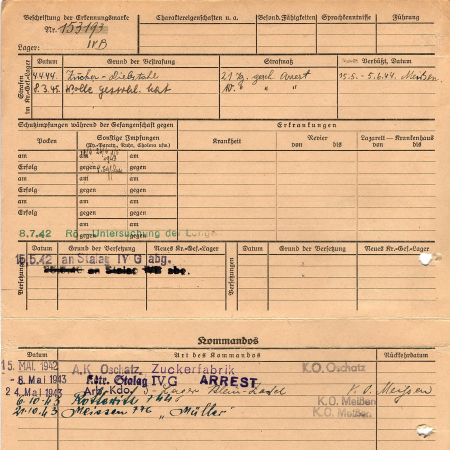 Beschriftung der Erkennungsmarke
Nr. 153193
IVB
Lager:
Charaktereigenschaften u. a.
Besond. Fähigkeiten
Sprachkenntnisse
Führung
Strafen im Kr.-Gef.-Lager
Datum
Grund der Bestrafung
Strafmaß
Verbüßt, Datum
4.4.44. Zucker-Diebstahl 21 Tg. gesch. Arrest 15.5. - 5.6.44. Meissen
8.3.45. Wolle gestohl. hat " "
Schutzimpfungen während der Gefangenschaft gegen
Erkrankungen
Pocken
Sonstige Impfungen
(Ty.-Paraty., Ruhr, Cholera usw.)
Krankheit
Revier
von bis
Lazarett - Krankenhaus
von bis
am am am
Erfolg gegen gegen
am am am
Erfolg gegen gegen
am am am
Erfolg gegen gegen
am am
gegen gegen
8.7.42 Rö. Untersuchung der Lunge
Versetzungen
Datum
Grund der Versetzung
Neues Kr.-Gef.-Lager
Versetzungen
Datum
Grund der Versetzung
Neues Kr.-Gef.-Lager
15.5.42 an Stalag IV G abg.
an Stalag IVB abg.
Kommandos
Datum
Art des Kommandos
Rückkehrdatum
15. MAI. 1942 A.K Oschatz, Zuckerfabrik K.O. Oschatz
- 8. Mai 1943 Kdtr. Stalag IV G ARREST
24. Mai 1943 Arb. Kdo. K. O. Meißen
6.10.43 K.O. Meißen
21.10.43 Meissen 776 "Müller" K.O. Meißen